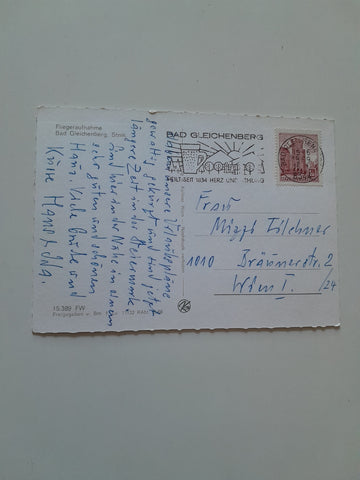 Fliegeraufnahme
Bad Gleichenberg, Stmk.
BAD GLEICHENBERG
HEILT SEIT 1834 HERZ UND
haben unsere Urlaubspläne
gewaltig geändert und sind jetzt
längere Zeit in der Steiermark
sind hier in der Nähe in einem
sehr guten und schönen
Haus. Viele Grüße und
Küsse Hans + Ida.
Frau
Mizzi Filschner
1010 Bräunerstr. 2
/24
Wien I.
15.389 FW
Freigegeben v. Bm